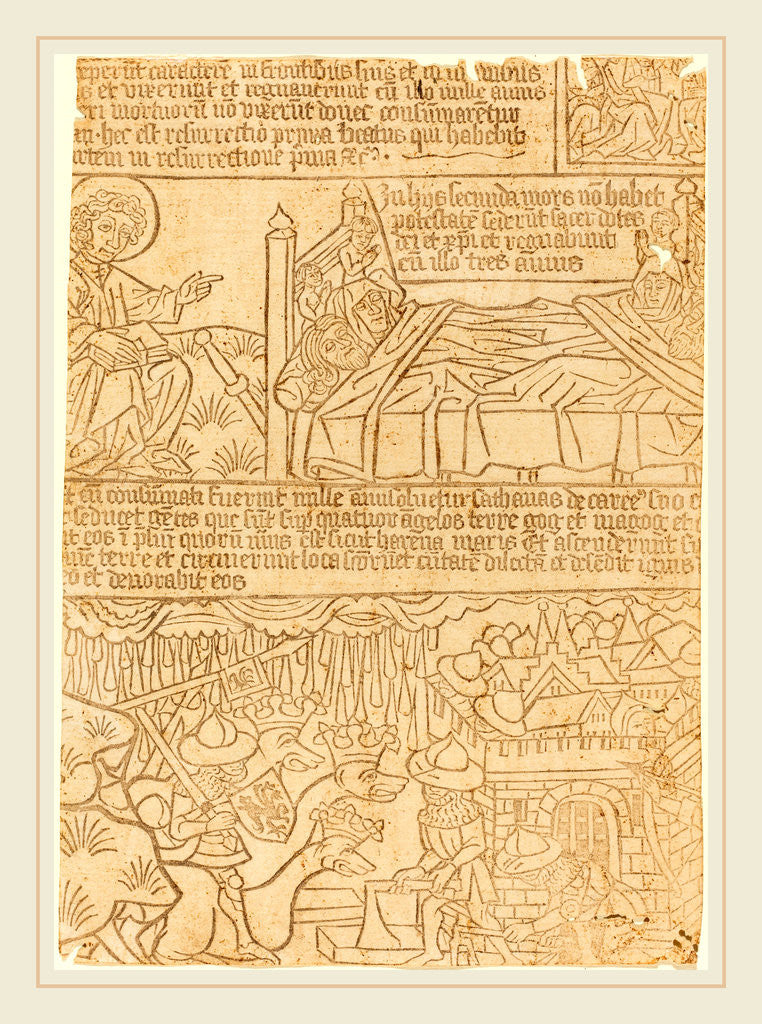 eperūt caracterē in frontibus suis et in manibus
s et vixerunt et regnaverunt cū illo mille annis
eri mortuorū nō vixerūt donec consumarētur
an · hec est resurrectio prima beatus qui habebit
artem in resurrectione p̄ma &c̄ .
In hys secunda mors nō habet
potestatē sed erūt sacerdotes
dei et xp̄i et regnabunt
cū illo tres annis
et cū consūmati fuerint mille anni solvetur sathanas de carcē suo
seducet gētes que sūt sup quatuor āgelos terre gog et magog et
it eos ī pliū quorū nūs est sicut harena maris Et ascenderunt
terre et circuierunt loca et civitatē dilectā et descēdit ignis
et devorabit eos